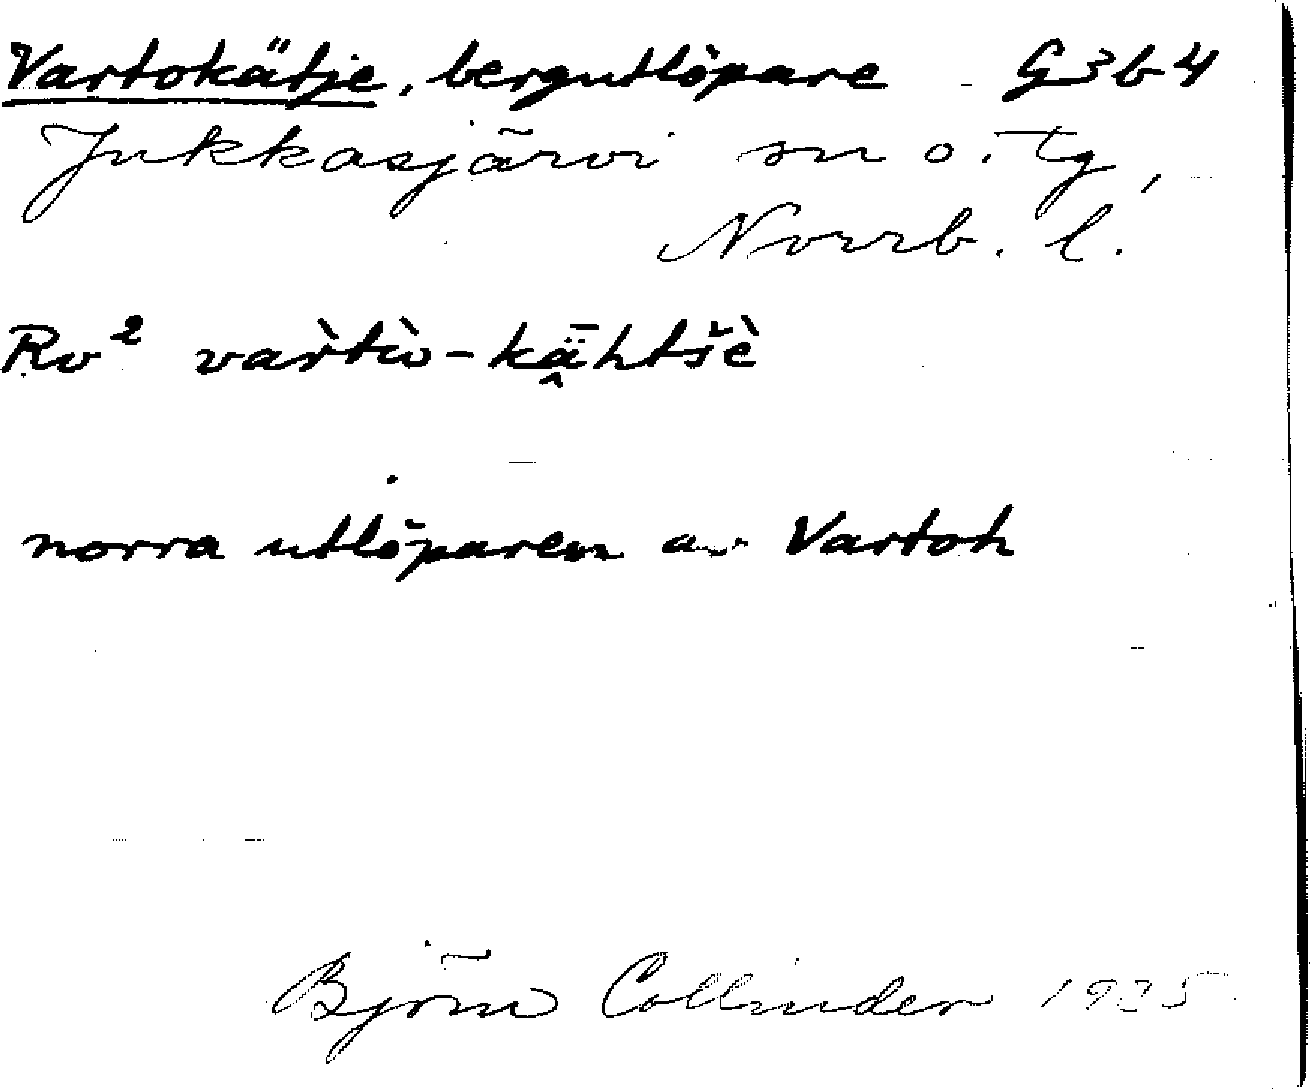 Vartokätje, bergutlöpare G3b4
Jukkasjärvi sn o. tg,
Norrb. l.
Rv² var̀tù̀-kǟ̭htšè
norra utlöparen av Vartoh
Björn Collinder 1935